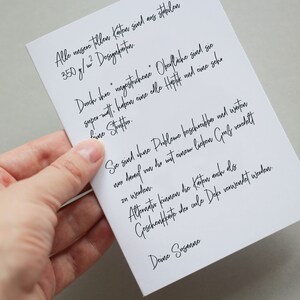 Alle unsere tollen Karten sind aus stabilem
350 g/m² Designkarton.
Durch ihre "ungestrichene" Oberfläche sind sie
super matt, haben eine edle Haptik und eine sehr
feine Struktur.
Sie sind ohne Probleme beschreibbar und warten
nur darauf von dir mit einem lieben Gruß veredelt
zu werden.
Alternativ können die Karten auch als
Geschenkkarte oder coole Deko verwendet werden.
Deine Susanne